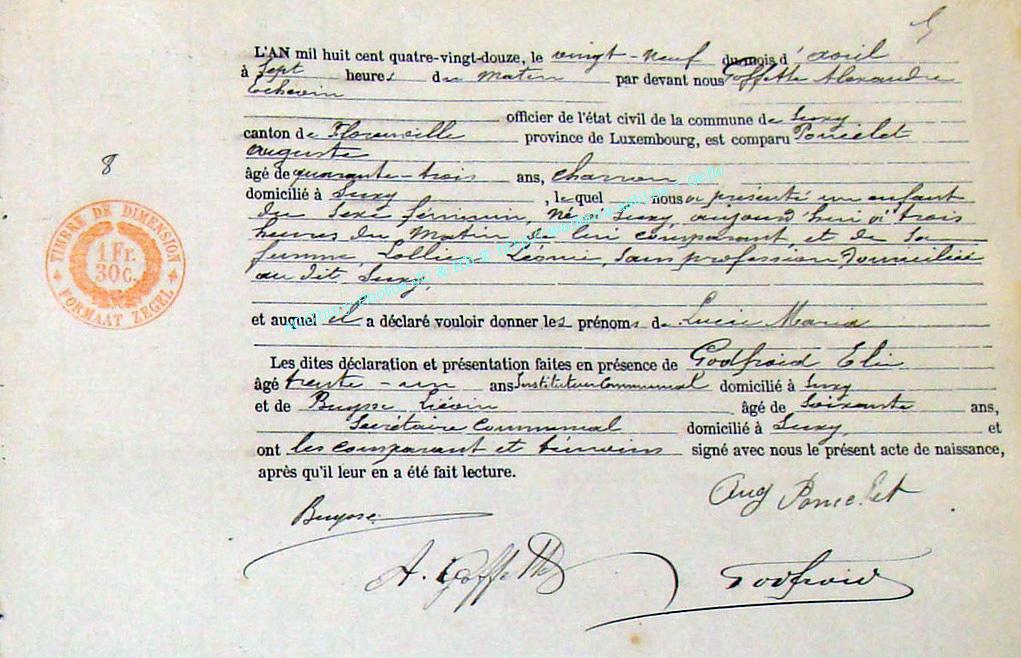 L'AN mil huit cent quatre-vingt-douze, le vingt-neuf du mois d'avril
à Sept heures du matin par devant nous Goffette Alexandre
Echevin
officier de l'état civil de la commune de Suxy
canton de Florenville province de Luxembourg, est comparu Poncelet
Auguste
âgé de quarante-trois ans, charron
domicilié à Suxy, lequel nous a présenté un enfant
du Sexe féminin, Né à Suxy, aujourd'hui à trois
heures du Matin de lui comparant, et de sa
femme, Léonie, Sans profession domiciliée
au dit Suxy.
et auquel il a déclaré vouloir donner les prénoms de Lucie Maria
Les dites déclaration et présentation faites en présence de Godfroid Elie
âgé trente-un ans Instituteur Communal domicilié à Suxy
et de Buysse Liévin âgé de Soixante ans,
Secrétaire Communal domicilié à Suxy, et
ont les comparant et témoins signé avec nous le présent acte de naissance,
après qu'il leur en a été fait lecture.
8
TIMBRE DE DIMENSION
1 Fr.
30 C.
FORMAAT ZEGEL
Aug Poncelet
Buysse
A. Goffette
Godfroid